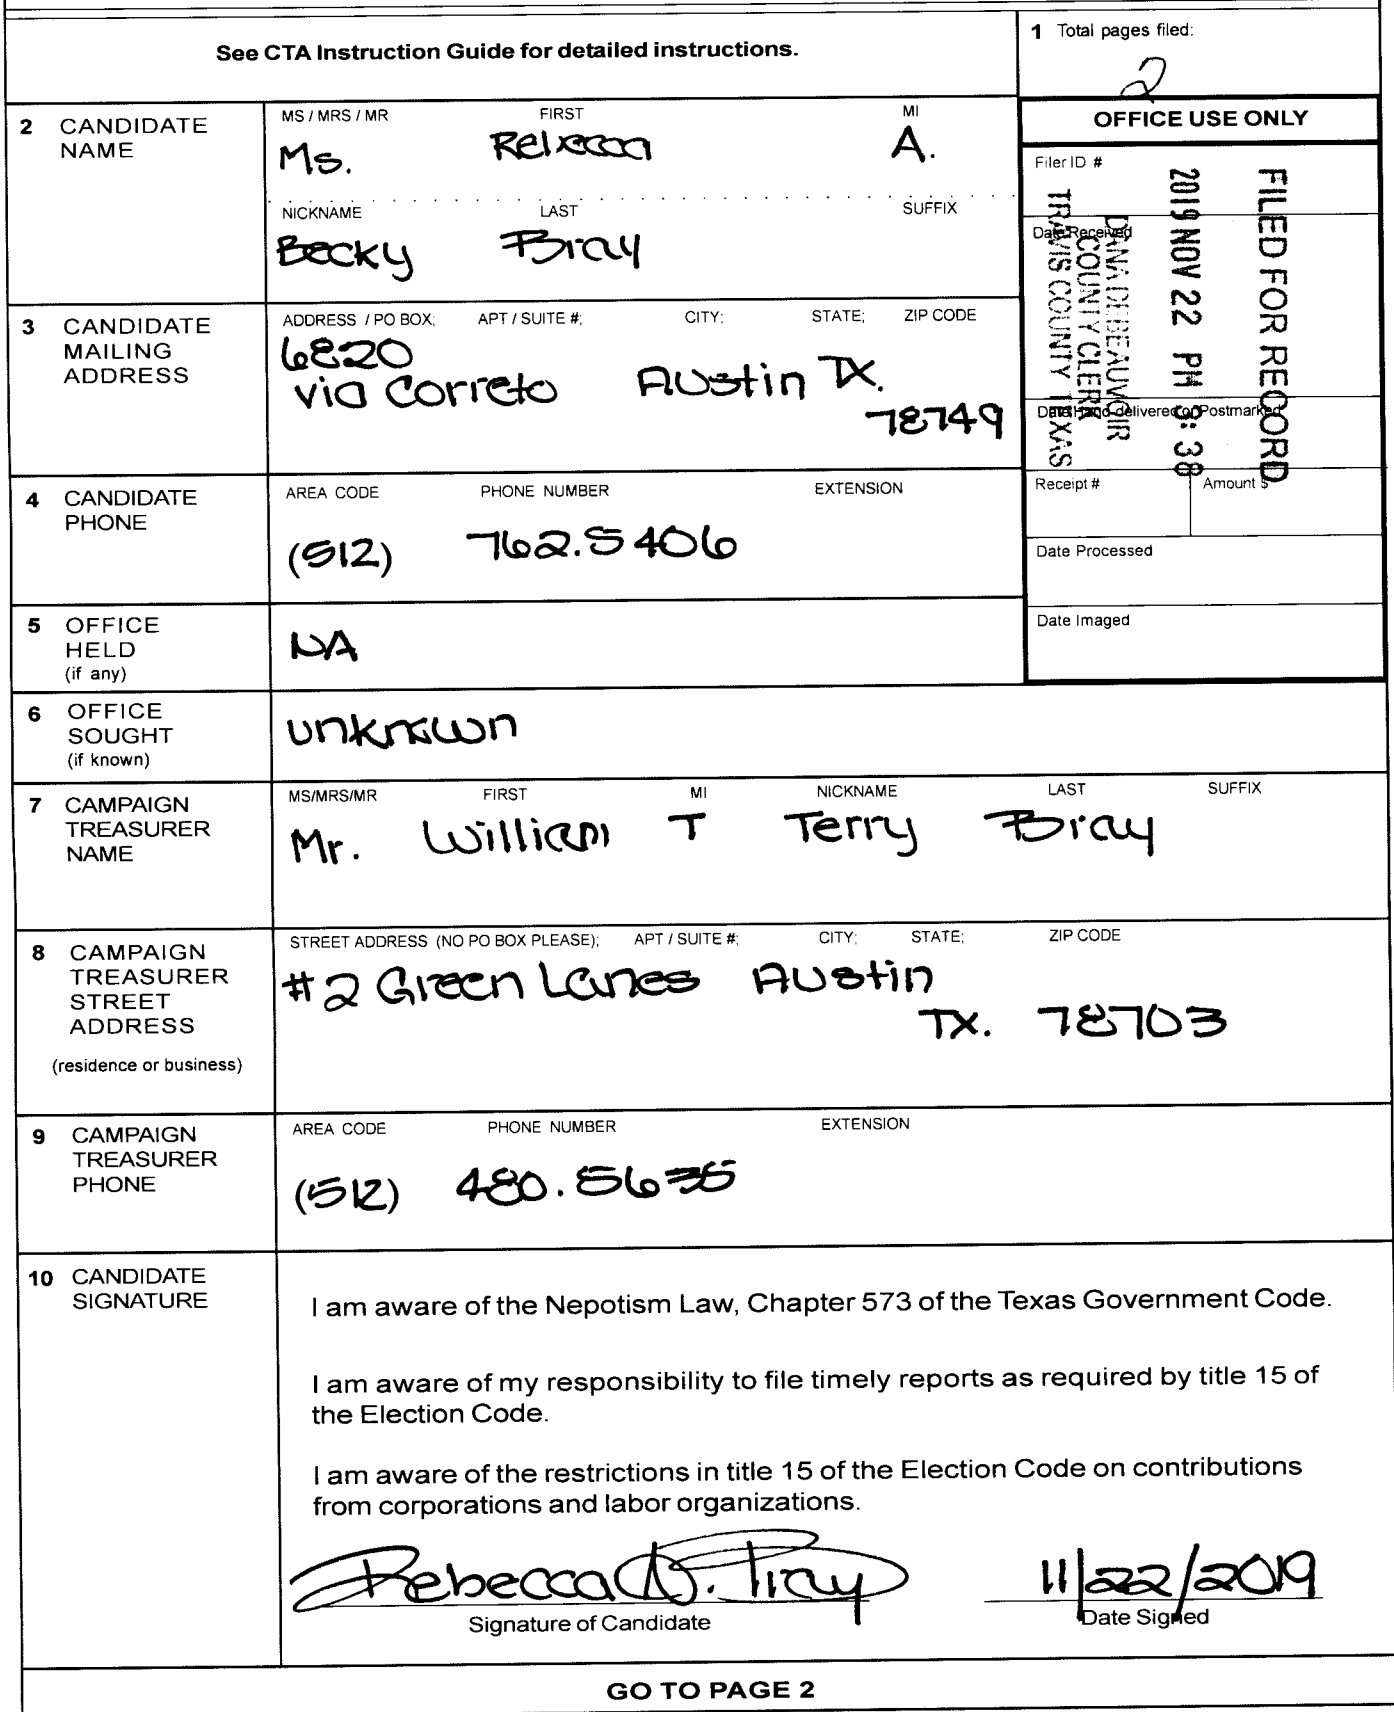 See CTA Instruction Guide for detailed instructions.
1 Total pages filed:
2
2 CANDIDATE NAME
MS / MRS / MR FIRST MI
Ms. Rebecca A.
NICKNAME LAST SUFFIX
Becky Bray
OFFICE USE ONLY
Filer ID #
Date Received
Date Hand-delivered or Postmarked
Receipt # Amount $
Date Processed
Date Imaged
FILED FOR RECORD
2019 NOV 22 PM 3:38
DANA DEBEAUVOIR
COUNTY CLERK
TRAVIS COUNTY TEXAS
3 CANDIDATE MAILING ADDRESS
ADDRESS / PO BOX; APT / SUITE #; CITY; STATE; ZIP CODE
6820
Via Correto Austin TX.
78749
4 CANDIDATE PHONE
AREA CODE PHONE NUMBER EXTENSION
(512) 762.5406
5 OFFICE HELD (if any)
NA
6 OFFICE SOUGHT (if known)
unknown
7 CAMPAIGN TREASURER NAME
MS/MRS/MR FIRST MI NICKNAME LAST SUFFIX
Mr. William T Terry Bray
8 CAMPAIGN TREASURER STREET ADDRESS
(residence or business)
STREET ADDRESS (NO PO BOX PLEASE); APT / SUITE #; CITY; STATE; ZIP CODE
#2 Green Lanes Austin
TX. 78703
9 CAMPAIGN TREASURER PHONE
AREA CODE PHONE NUMBER EXTENSION
(512) 480.5635
10 CANDIDATE SIGNATURE
I am aware of the Nepotism Law, Chapter 573 of the Texas Government Code.
I am aware of my responsibility to file timely reports as required by title 15 of
the Election Code.
I am aware of the restrictions in title 15 of the Election Code on contributions
from corporations and labor organizations.
Rebecca A. Bray 11/22/2019
Signature of Candidate Date Signed
GO TO PAGE 2